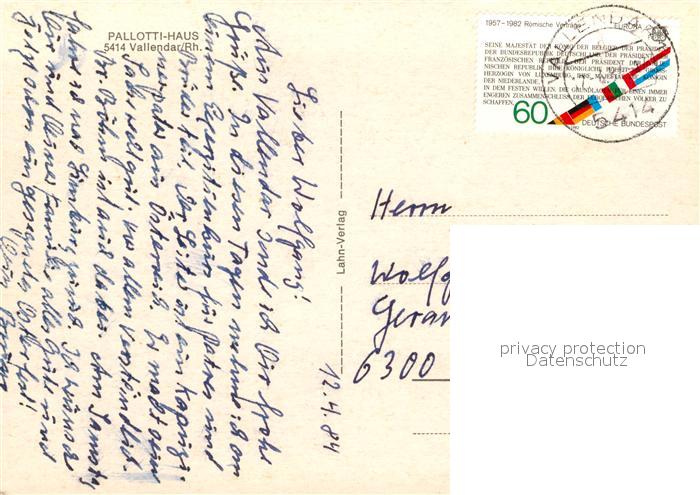 PALLOTTI-HAUS
5414 Vallendar/Rh.
Lieber Wolfgang!
Aus Vallendar sende ich Dir frohe
Grüße. In diesen Tagen nehme ich an
einem Exerzitienkurs für Patres und
Brüder teil. Der Leiter ist ein Kapuzi-
nerpater aus Österreich. Er macht seine
Sache recht gut, vor allem verständlich.
ist auch dabei. Am Samstag
fahre ich nach Limburg zurück. Ich wünsche
Dir und Deiner Familie alles Gute und
ein gesegnetes Osterfest!
Dein
12.4.84
Lahn-Verlag
1957-1982 Römische Verträge
EUROPA
SEINE MAJESTÄT DER KÖNIG DER BELGIER, DER PRÄSIDENT
DER BUNDESREPUBLIK DEUTSCHLAND, DER PRÄSIDENT DER
FRANZÖSISCHEN REPUBLIK, DER PRÄSIDENT DER ITALIE-
NISCHEN REPUBLIK, IHRE KÖNIGLICHE HOHEIT DIE GROSS-
HERZOGIN VON LUXEMBURG, IHRE MAJESTÄT DIE KÖNIGIN
DER NIEDERLANDE,
IN DEM FESTEN WILLEN, DIE GRUNDLAGEN FÜR EINEN IMMER
ENGEREN ZUSAMMENSCHLUSS DER EUROPÄISCHEN VÖLKER ZU
SCHAFFEN,
60
DEUTSCHE BUNDESPOST
VALLENDAR
5414
Herrn
Wolfg
Geran
6300
privacy protection
Datenschutz